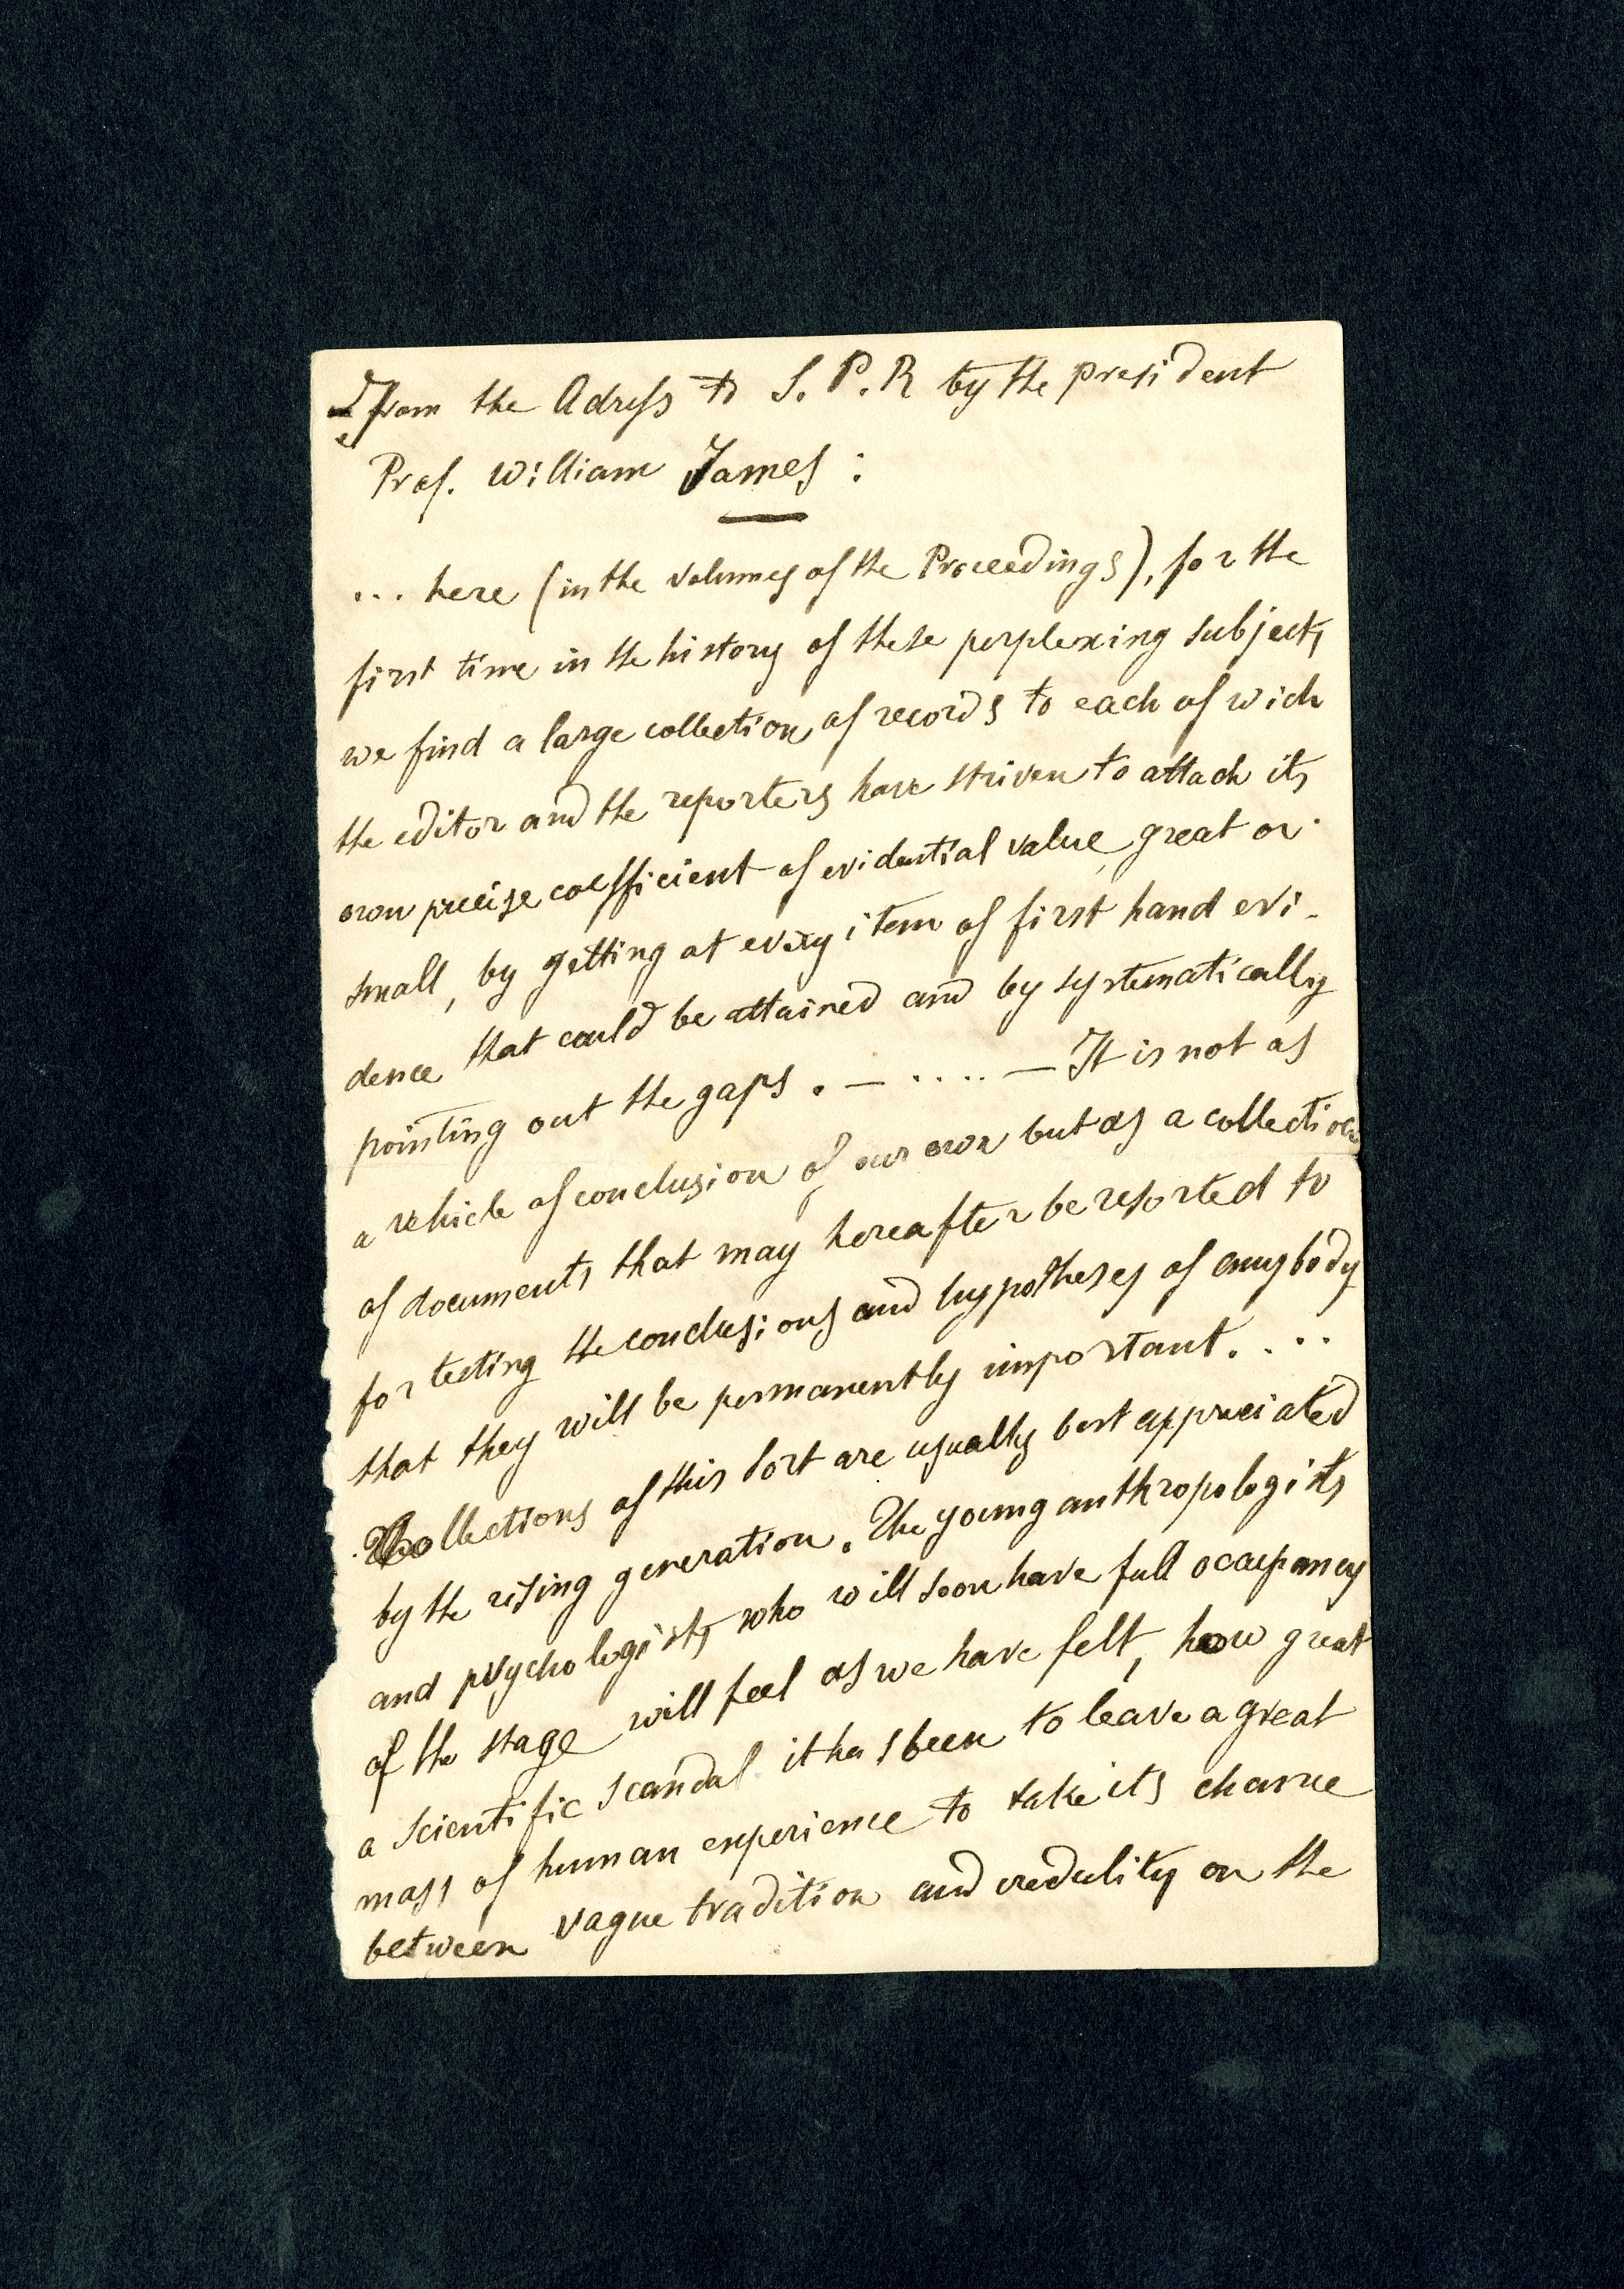 From the Adress to S. P. R by the president
Prof. William James :
... here (in the volumes of the Proceedings), for the
first time in the history of these perplexing subjects
we find a large collection of records to each of wich
the editor and the reporters have striven to attach its
own precise coefficient of evidential value, great or
small, by getting at every item of first hand evi-
dence that could be attained and by systematically
pointing out the gaps . — ..... — It is not as
a vehicle of conclusion of our own but as a collection
of documents that may hereafter be resorted to
for testing the conclusions and hypotheses of anybody
that they will be permanently important. ...
Collections of this sort are usually best appreciated
by the rising generation. The young anthropologists
and psychologists who will soon have full occupancy
of the stage will feel as we have felt, how great
a scientific scandal it has been to leave a great
mass of human experience to take its chance
between vague tradition and credulity on the